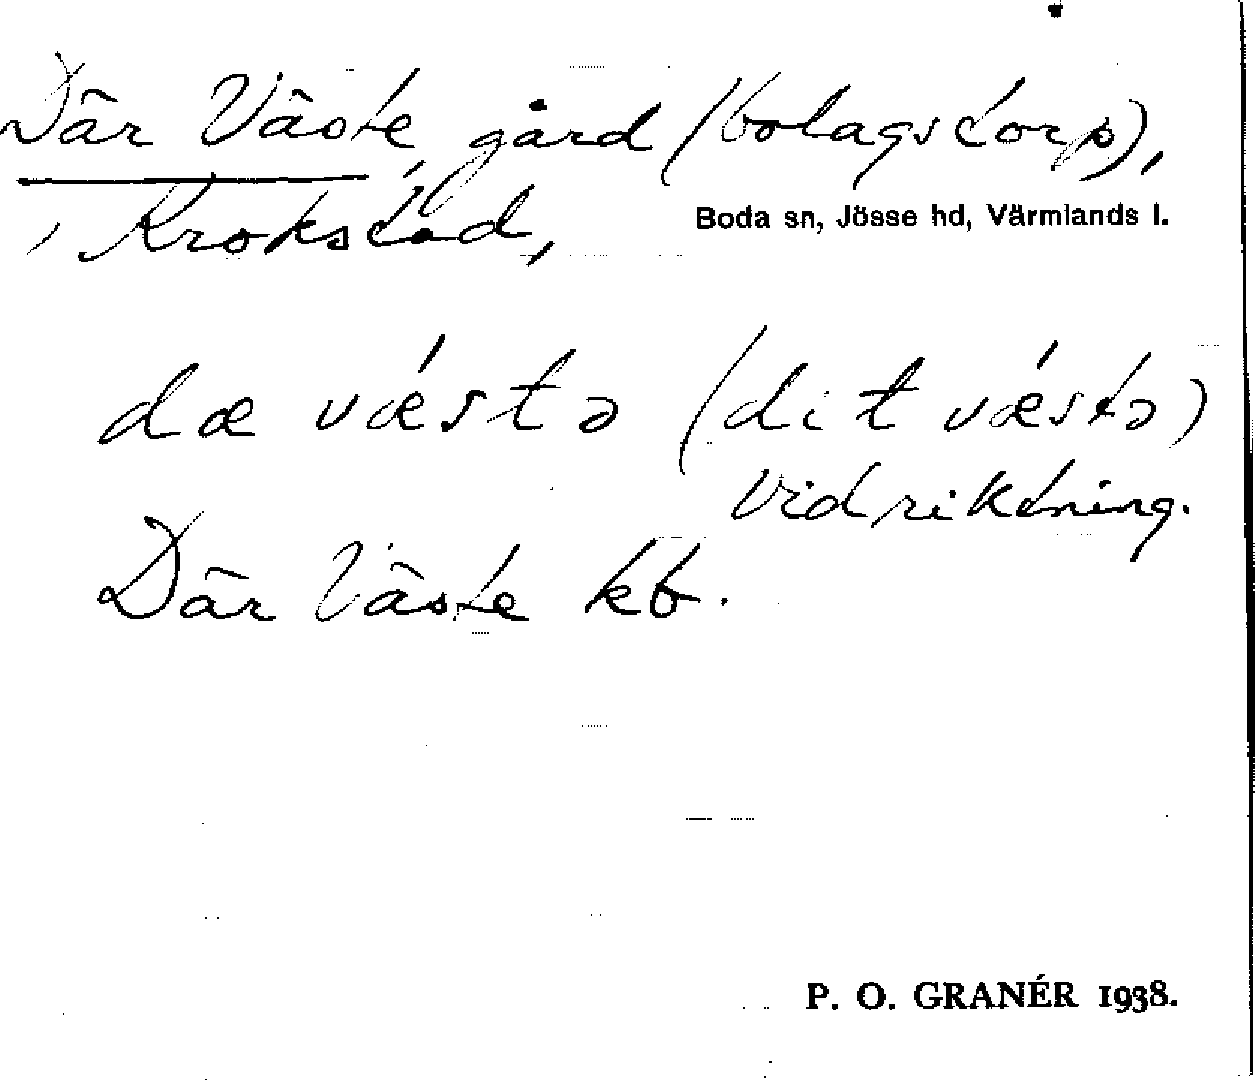 Där Väste, gård (bolagstorp),
i Krokstad,
Boda sn, Jösse hd, Värmlands l.
dæ vǽstə (dit vǽstə)
vid riktning.
Där Väste kb.
P. O. GRANÉR 1938.